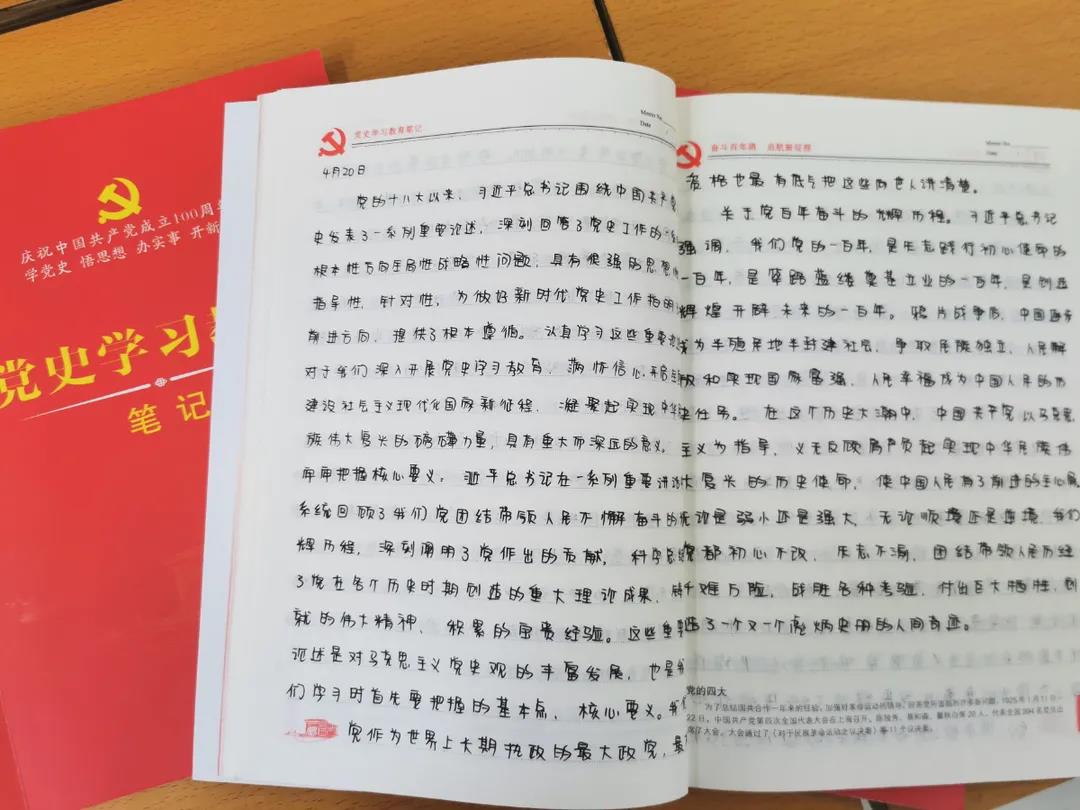 庆祝中国共产党成立100周年
学党史 悟思想 办实事 开新
党史学习教
笔记
党史学习教育笔记
Memo No.
Date
4月20日
党的十八大以来，习近平总书记围绕中国共产党
史发表了一系列重要论述，深刻回答了党史工作的一
根本性方向全局性战略性问题，具有很强的思想
指导性，针对性，为做好新时代党史工作指明
前进方向，提供了根本遵循。认真学习这些重要
对于我们深入开展党史学习教育，满怀信心开启
建设社会主义现代化国家新征程，凝聚起实现中华
族伟大复兴的磅礴力量，具有重大而深远的意义。
牢牢把握核心要义：习近平总书记在一系列重要讲话
系统回顾了我们党团结带领人民不懈奋斗的光
辉历程，深刻阐明了党作出的贡献，科学总结
了党在各个历史时期创造的重大理论成果、铸
就的伟大精神、积累的宝贵经验。这些重要
论述是对马克思主义党史观的丰富发展，也是我
们学习时首先要把握的基本点、核心要义。我们
党作为世界上大期执政的最大政党，最
奋斗百年路 启航新征程
Memo No.
Date
资格也最有底气把这些向世人讲清楚。
关于党百年奋斗的光辉历程。习近平总书记
强调，我们党的一百年，是矢志践行初心使命的
一百年，是筚路蓝缕奠基立业的一百年，是创造
辉煌开辟未来的一百年。鸦片战争后，中国逐步
成为半殖民地半封建社会，争取民族独立、人民解
放和实现国家富强、人民幸福成为中国人民的历
史任务。在这个历史大潮中，中国共产党以马克思
主义为指导，义无反顾肩负起实现中华民族伟
大复兴的历史使命，使中国人民有了前进的主心骨
无论是弱小还是强大，无论顺境还是逆境，我们
党都初心不改、矢志不渝，团结带领人民历经
千难万险，战胜各种考验，付出巨大牺牲，创
造了一个又一个彪炳史册的人间奇迹。
党的四大
为了总结国共合作一年来的经验，加强对革命运动的领导，回答党所面临的许多新问题，1925年1月11日—
22日，中国共产党第四次全国代表大会在上海召开。陈独秀、蔡和森、瞿秋白等20人，代表全国994名党员出
席了大会。大会通过了《对于民族革命运动之议决案》等11个议决案。